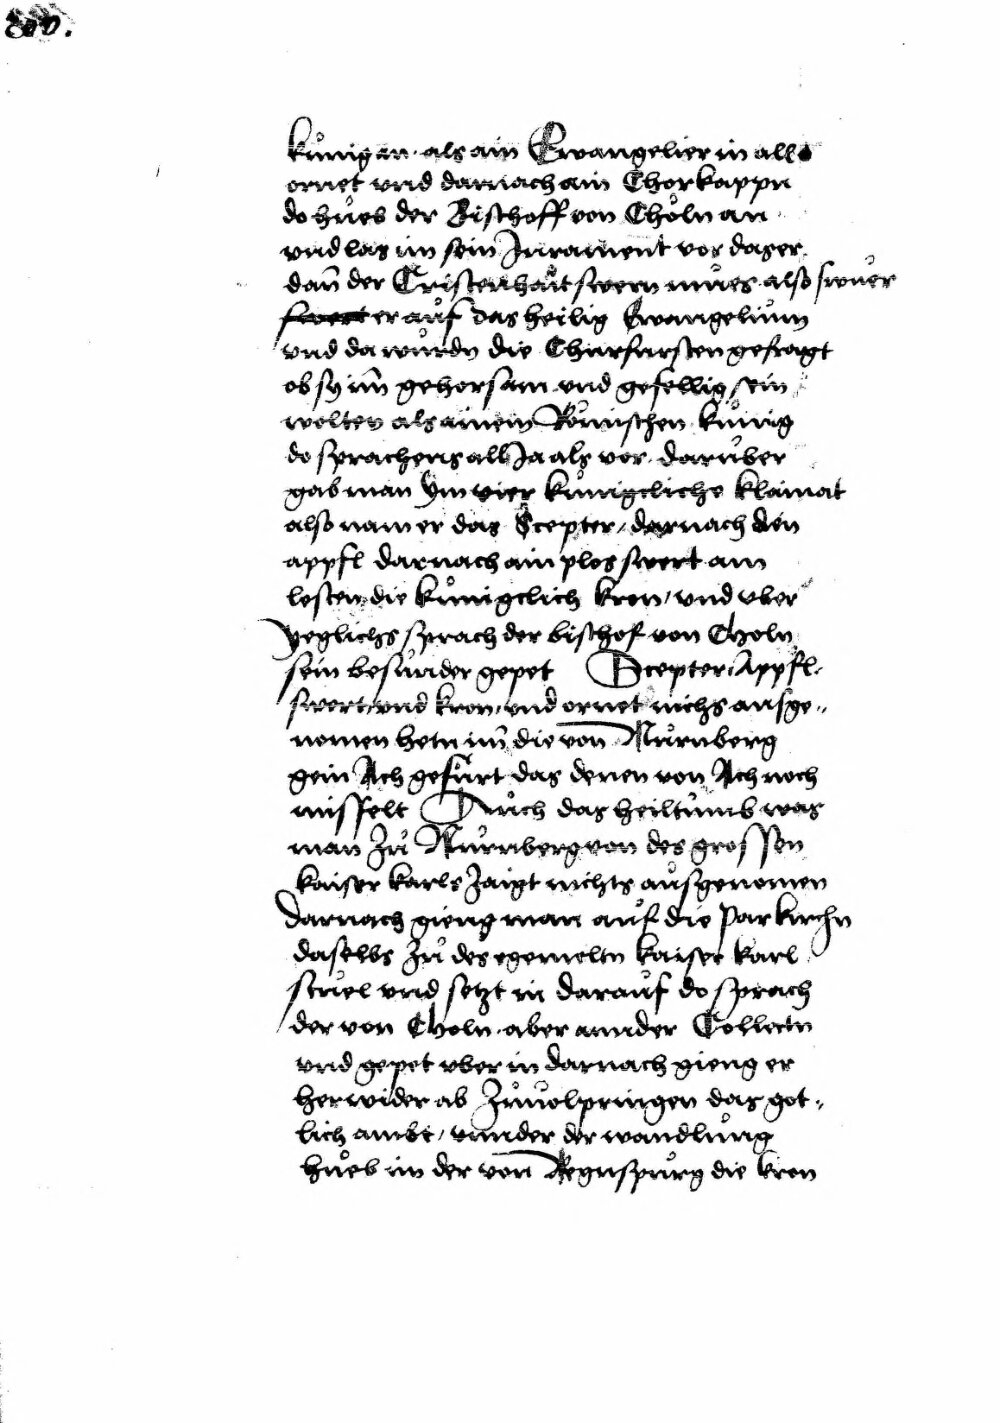 kůnig an. als ain Ewangelier in all
ornet vnd darnach ain Chorkappn
do hůeb der Bischoff von Chöln an
vnd las im sein Jurament vor das er
dan̄ der Cristenhait swern můes also swuer
er auf das heilig Ewangelium
vnd da wurdn die Churfursten gefragt
ob sy im̄ gehorsam vnd gefellig sein
wolten als ainem Römischen kůnig
do sprachens all Ja als vor. daruber
gab man ym vier kůnigcliche klainat
also nam er das Scepter / darnach den
appfl darnach ain plos swert am
lesten die kůnigclich kron / vnd vber
yeglichs sprach der bischof von Choln
sein besunder gepet Scepter, Appfl.
swert, vnd kron, vnd ornet nichs ausge„
nomen hetn im̄ die von Nůrnberg
gein Ach gefürt das denen von Ach noch
missfelt Auch das heiltumb was
man zů Nůrnberg von des grossen
kaiser karls zaigt nichts ausgenomen
darnach gieng man auf die Parkirchn
daselbs zů des egemeltn kaiser karl
stuel vnd setzt in darauf do sprach
der von Choln aber annder Collectn
vnd gepet vber in darnach gieng er
herwider ab zůuolpringen das got„
lich ambt / vnnder der wandlůng
hůeb im der von Regnspurg die kron